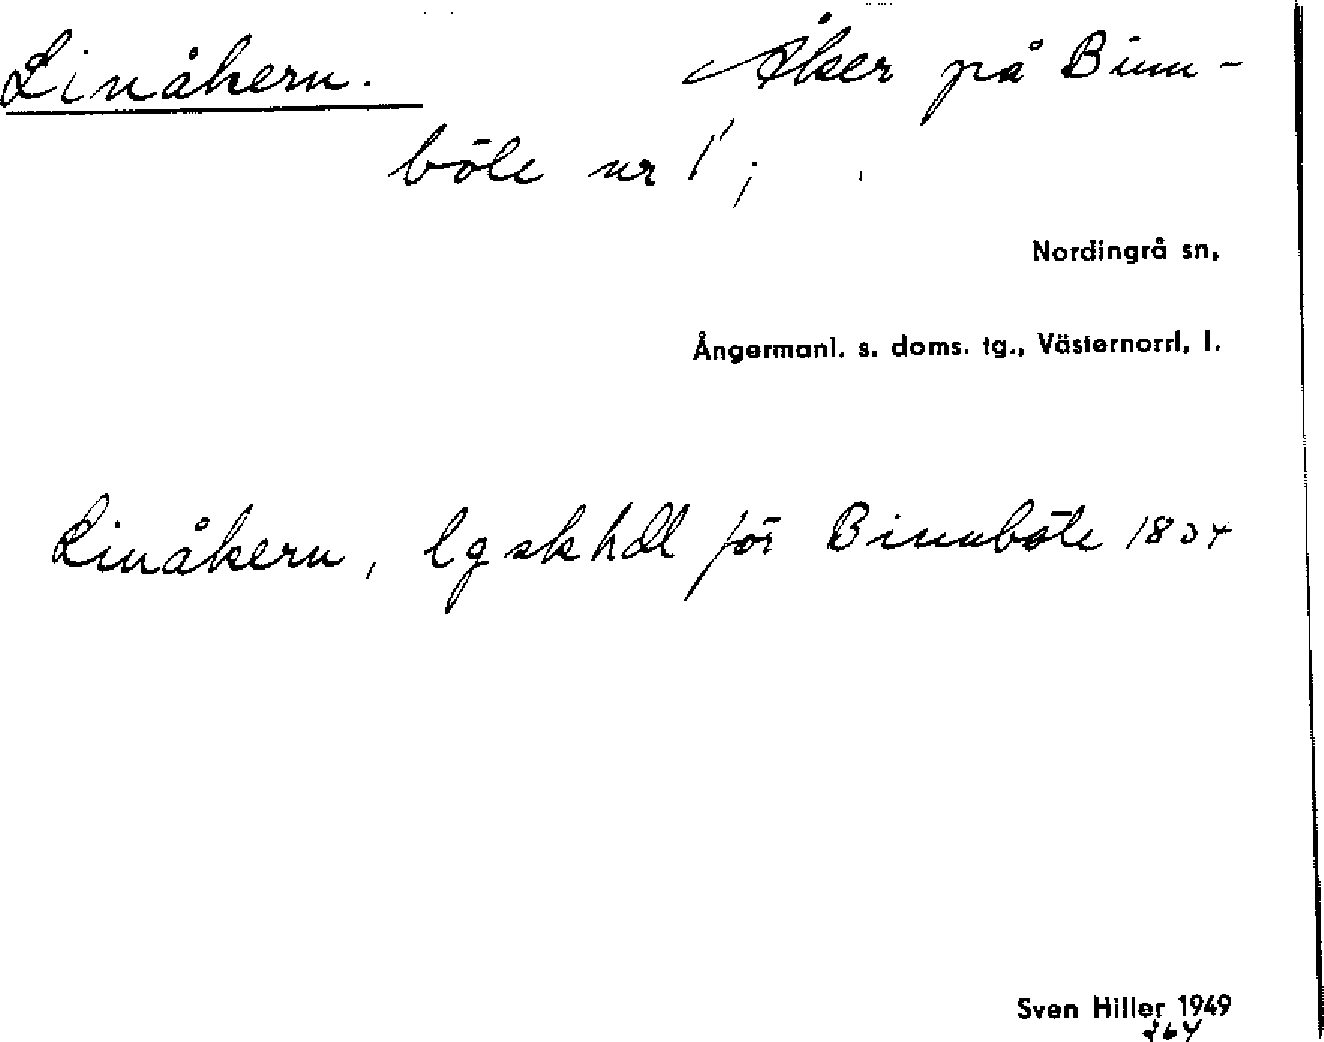 Linåkern. Åker på Binn-
böle nr 1;
Nordingrå sn,
Ångermanl. s. doms. tg., Västernorrl, l.
Linåkern, lgskhdl för Binnböle 1804
Sven Hiller 1949